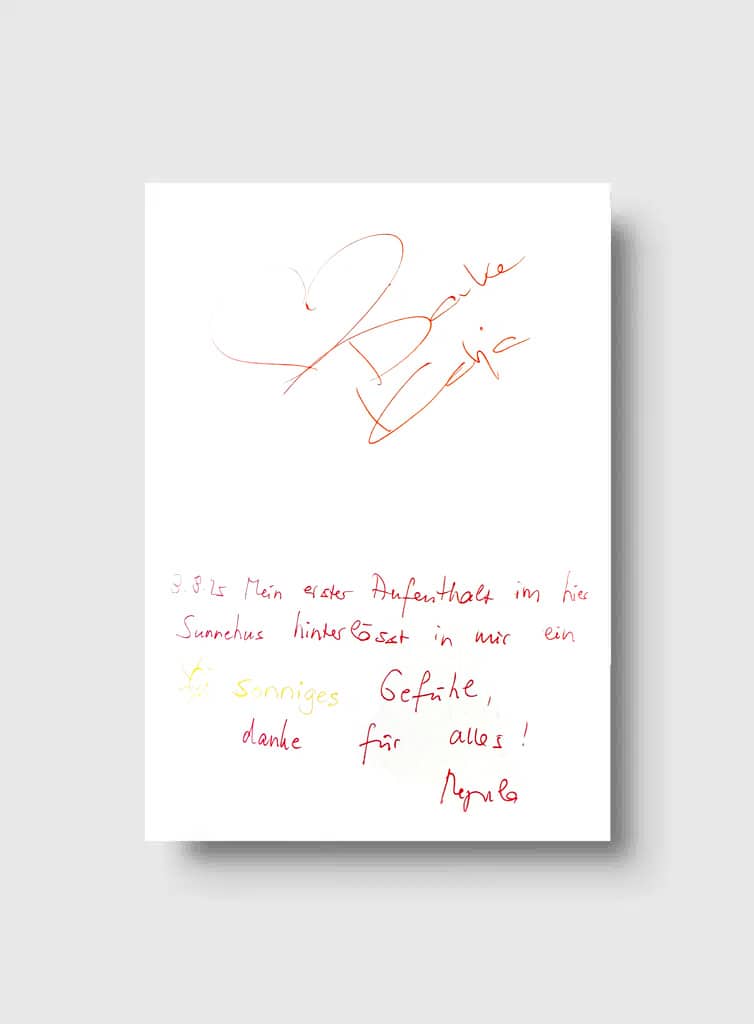 Danke
Katja
3.8.25 Mein erster Aufenthalt im hier
Sunnehus hinterlässt in mir ein
sonniges Gefühl,
danke für alles!
Regula